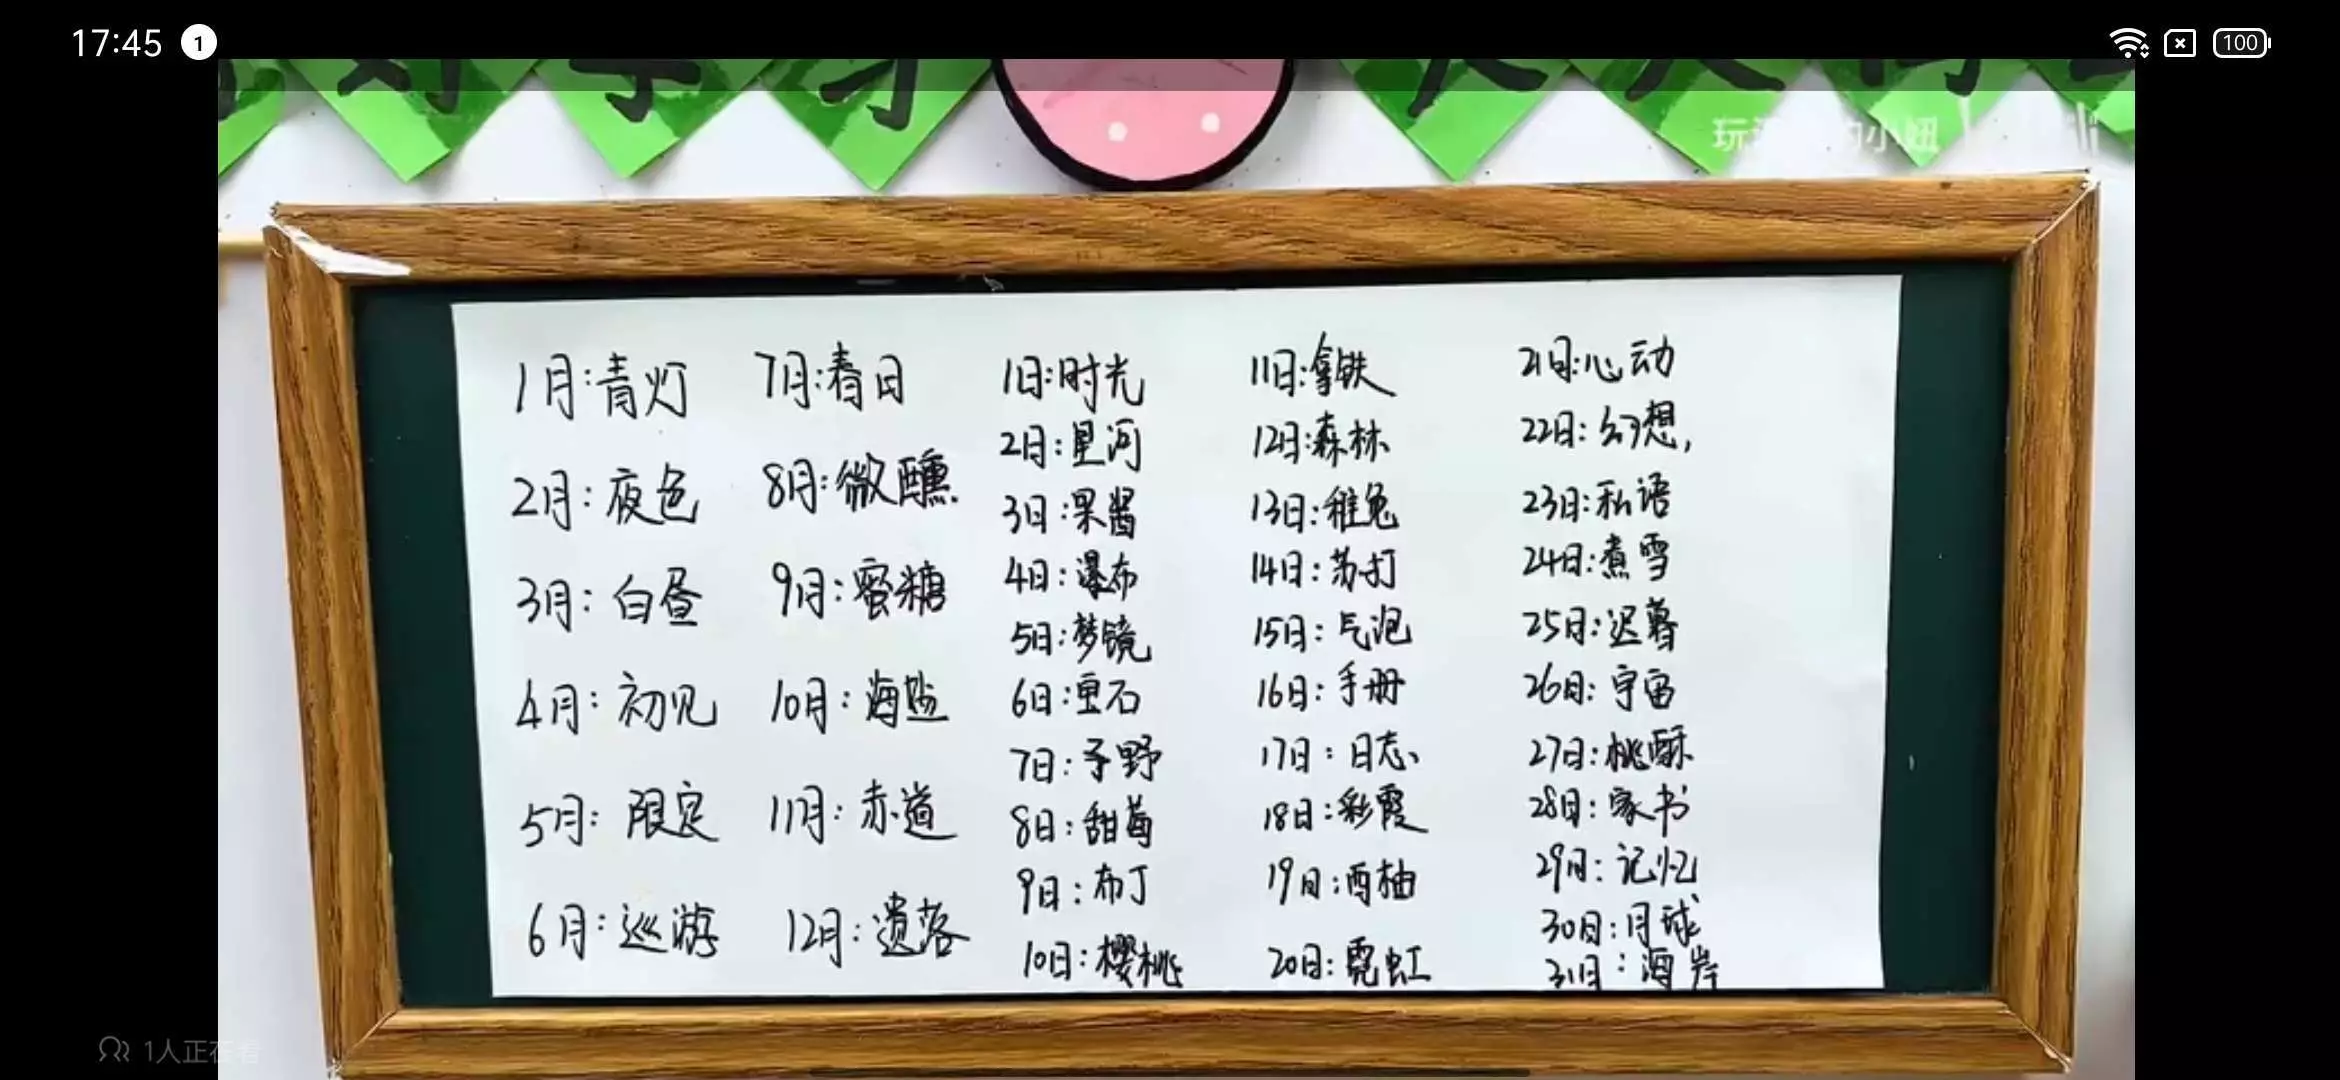 17:45 1
100
1月:青灯
2月:夜色
3月:白昼
4月:初见
5月:限定
6月:巡游
7月:春日
8月:微醺
9月:蜜糖
10月:海盐
11月:赤道
12月:遗落
1日:时光
2日:星河
3日:果酱
4日:瀑布
5日:梦镜
6日:重石
7日:予野
8日:甜莓
9日:布丁
10日:樱桃
11日:拿铁
12日:森林
13日:稚兔
14日:苏打
15日:气泡
16日:手册
17日:日志
18日:彩霞
19日:西柚
20日:霓虹
21日:心动
22日:幻想,
23日:私语
24日:煮雪
25日:迟暮
26日:宇宙
27日:桃酥
28日:家书
29日:记忆
30日:月球
31日:海岸
1人正在看